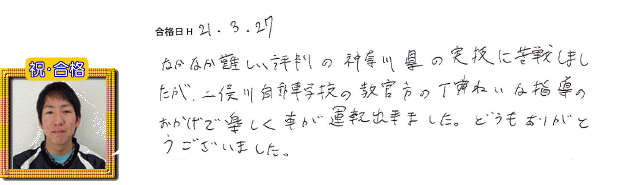 合格日 H 21.3.27
祝・合格
なかなか難しい評判の神奈川県の実技に苦戦しまし
たが、二俣川自動車学校の教官方の丁寧ねいな指導の
おかげで楽しく車が運転出来ました。どうもありがと
うございました。